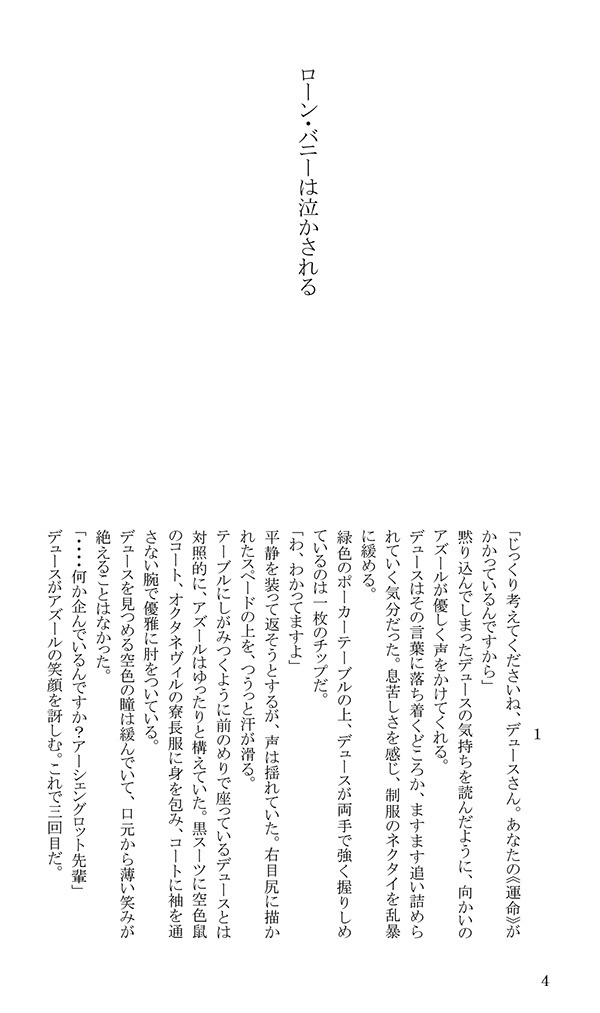 ローン・バニーは泣かされる
1
「じっくり考えてくださいね、デュースさん。あなたの《運命》が
かかっているんですから」
黙り込んでしまったデュースの気持ちを読んだように、向かいの
アズールが優しく声をかけてくれる。
デュースはその言葉に落ち着くどころか、ますます追い詰めら
れていく気分だった。息苦しさを感じ、制服のネクタイを乱暴
に緩める。
緑色のポーカーテーブルの上、デュースが両手で強く握りしめ
ているのは一枚のチップだ。
「わ、わかってますよ」
平静を装って返そうとするが、声は揺れていた。右目尻に描か
れたスペードの上を、つうっと汗が滑る。
テーブルにしがみつくように前のめりで座っているデュースとは
対照的に、アズールはゆったりと構えていた。黒スーツに空色鼠
のコート、オクタネヴィルの寮長服に身を包み、コートに袖を通
さない腕で優雅に肘をついている。
デュースを見つめる空色の瞳は緩んでいて、口元から薄い笑みが
絶えることはなかった。
「・・・・何か企んでいるんですか？アーシェングロット先輩」
デュースがアズールの笑顔を訝しむ。これで三回目だ。
4